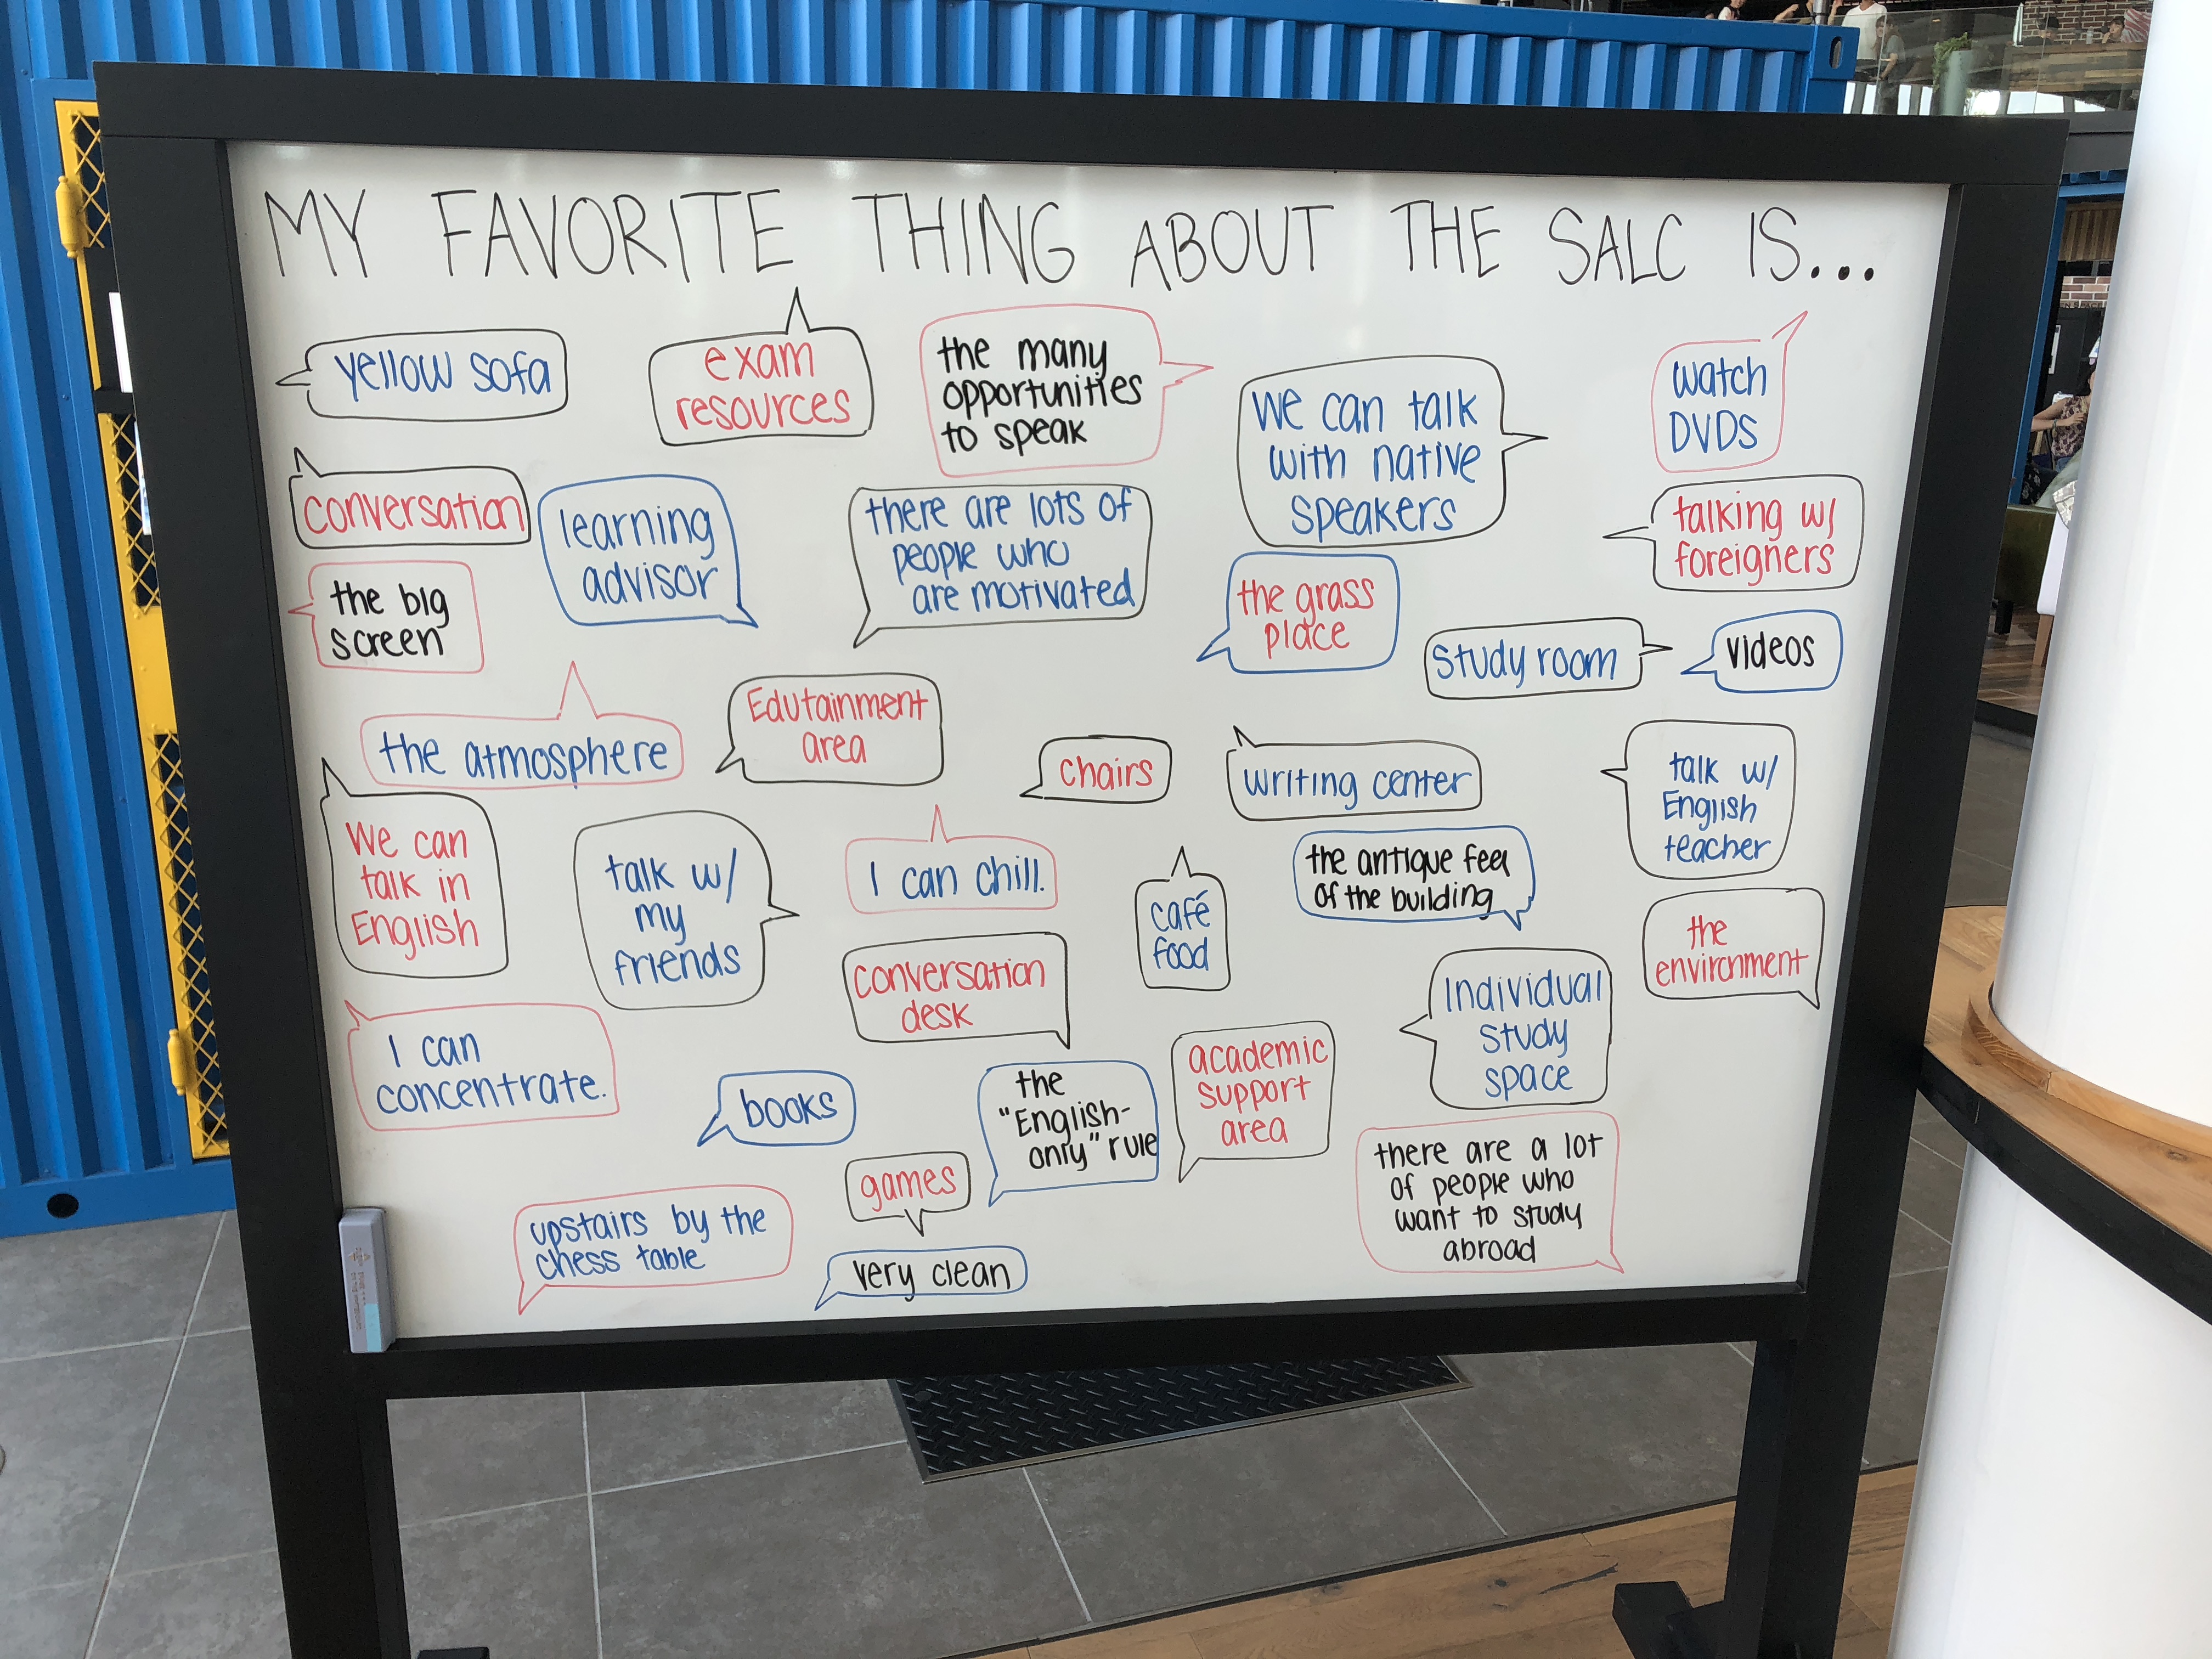 MY FAVORITE THING ABOUT THE SALC IS...
yellow sofa
exam
resources
the many
opportunities
to speak
we can talk
with native
speakers
watch
DVDs
conversation
learning
advisor
there are lots of
people who
are motivated
talking w/
foreigners
the big
screen
the grass
place
study room
videos
the atmosphere
Edutainment
area
chairs
writing center
talk w/
English
teacher
We can
talk in
English
talk w/
my
friends
I can chill.
café
food
the antique feel
of the building
the
environment
conversation
desk
Individual
study
space
I can
concentrate.
books
the
"English-
only" rule
academic
support
area
there are a lot
of people who
want to study
abroad
games
upstairs by the
chess table
very clean